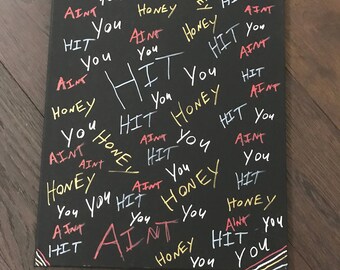 AINT HONEY HONEY
YOU AINT YOU
HIT YOU HIT AINT
YOU HIT YOU
AINT YOU HONEY HIT
HONEY HIT YOU
YOU AINT HONEY
AINT HONEY HIT YOU
AINT YOU
HONEY AINT HONEY HIT
YOU YOU HIT YOU HONEY
AINT YOU AINT YOU
HIT AINT HONEY HIT YOU
YOU